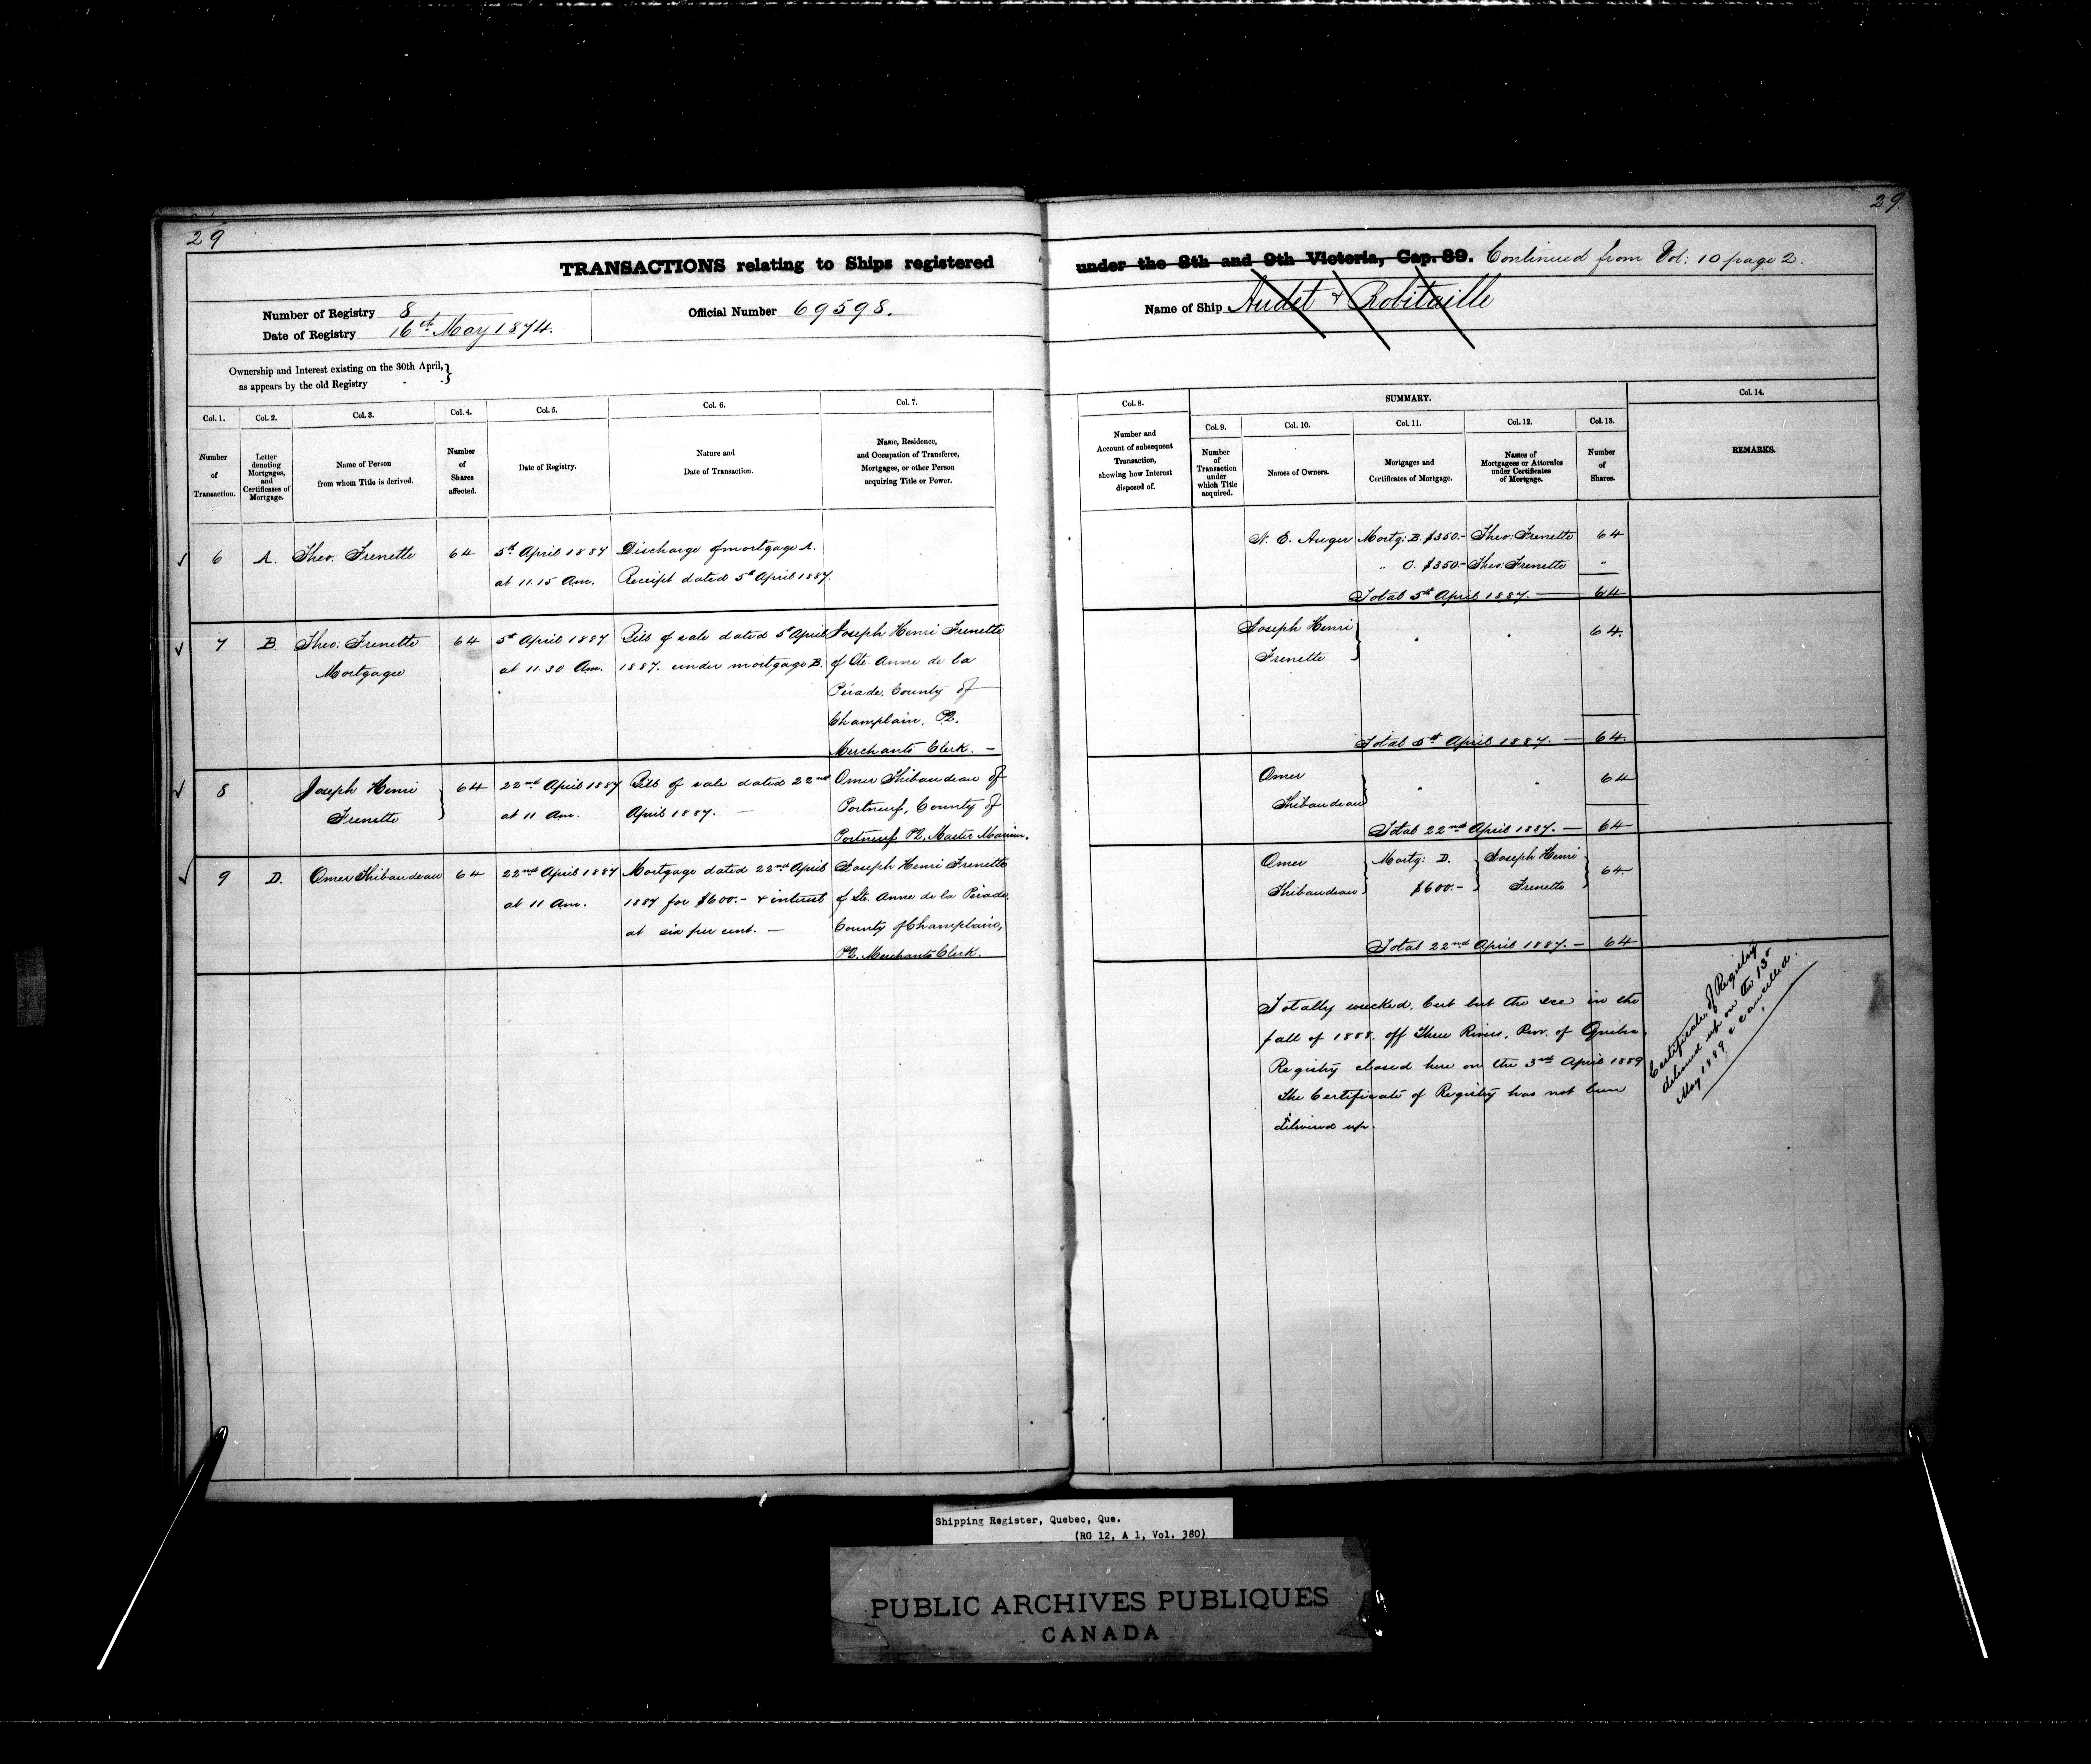 29
29.
TRANSACTIONS relating to Ships registered under the 8th and 9th Victoria, Cap. 89. Continued from Vol: 10 page 2.
Number of Registry 8
Date of Registry 16th May 1874.
Official Number 69598.
Name of Ship Audet & Robitaille
Ownership and Interest existing on the 30th April,
as appears by the old Registry
Col. 1.
Number
of
Transaction.
Col. 2.
Letter
denoting
Mortgages,
and
Certificates of
Mortgage.
Col. 3.
Name of Person
from whom Title is derived.
Col. 4.
Number
of
Shares
affected.
Col. 5.
Date of Registry.
Col. 6.
Nature and
Date of Transaction.
Col. 7.
Name, Residence,
and Occupation of Transferee,
Mortgagee, or other Person
acquiring Title or Power.
Col. 8.
Number and
Account of subsequent
Transaction,
showing how Interest
disposed of.
SUMMARY.
Col. 9.
Number
of
Transaction
under
which Title
acquired.
Col. 10.
Names of Owners.
Col. 11.
Mortgages and
Certificates of Mortgage.
Col. 12.
Names of
Mortgagees or Attornies
under Certificates
of Mortgage.
Col. 13.
Number
of
Shares.
Col. 14.
REMARKS.
6
A.
Theo: Frenette
64
5th April 1887
at 11.15 Am.
Discharge of mortgage A.
Receipt dated 5th April 1887.
N. E. Auger
Mortg: B. $350.-
Theo: Frenette
64
" C. $350.-
Theo: Frenette
"
Total 5th April 1887. — 64
7
B.
Theo: Frenette
Mortgagee
64
5th April 1887
at 11.30 Am.
Bill of sale dated 5th April
1887. under mortgage B.
Joseph Henri Frenette
of Ste. Anne de la
Pérade, County of
Champlain. PQ.
Merchants Clerk. —
Joseph Henri
Frenette
64.
Total 5th April 1887. — 64
8
Joseph Henri
Frenette
64
22nd April 1887
at 11 Am.
Bill of sale dated 22nd
April 1887. —
Omer Thibaudeau of
Portneuf, County of
Portneuf PQ, Master Mariner.
Omer
Thibaudeau
64
Total 22nd April 1887. — 64
9
D.
Omer Thibaudeau
64
22nd April 1887
at 11 Am.
Mortgage dated 22nd April
1887 for $600.- & interest
at six per cent. —
Joseph Henri Frenette
of Ste. Anne de la Pérade,
County of Champlain,
PQ. Merchants Clerk.
Omer
Thibaudeau
Mortg: D.
$600.-
Joseph Henri
Frenette
64
Total 22nd April 1887. — 64
Totally wrecked, Cut but the ice in the
fall of 1888. off Three Rivers. Prov. of Quebec.
Registry closed here on the 3rd April 1889
The Certificate of Registry has not been
delivered up.
Certificate of Registry
delivered up on the 13th
May 1889 & cancelled.
Shipping Register, Quebec, Que.
(RG 12, A 1, Vol. 380)
PUBLIC ARCHIVES PUBLIQUES
CANADA